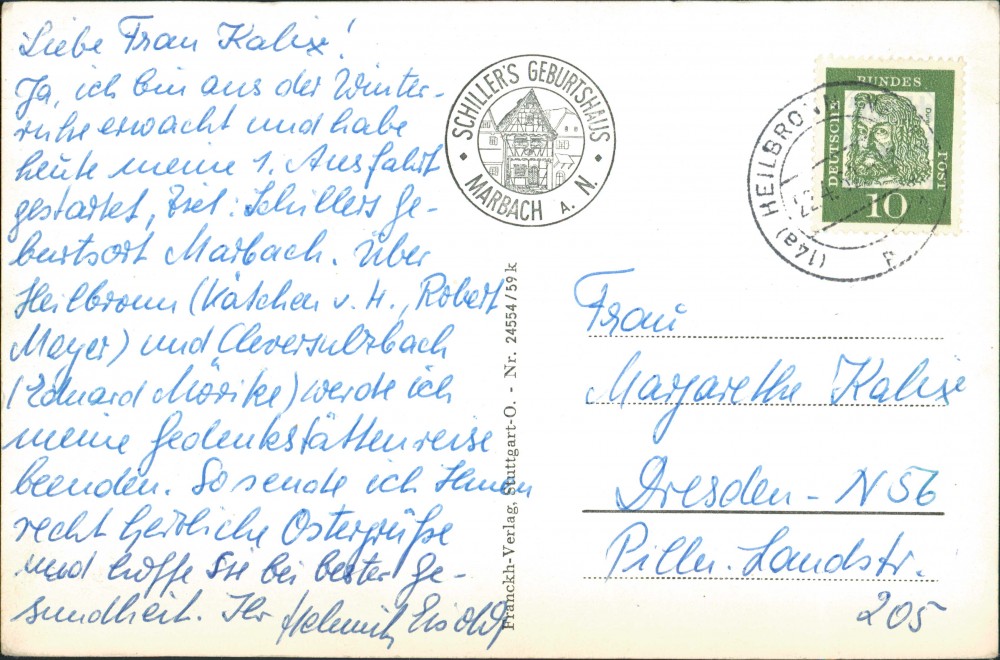 Liebe Frau Kalix!
Ja, ich bin aus der Winter-
ruhe erwacht und habe
heute meine 1. Ausfahrt
gestartet, Ziel: Schillers Ge-
burtsort Marbach. Über
Heilbronn (Kätchen v. H., Robert
Mayer) und Cleversulzbach
(Eduard Mörike) werde ich
meine Gedenkstättenreise
beenden. So sende ich Ihnen
recht herzliche Ostergrüße
und hoffe Sie bei bester Ge-
sundheit. Ihr Helmut
SCHILLER'S GEBURTSHAUS
MARBACH A. N.
Franckh-Verlag, Stuttgart-O. - Nr. 24554/59k
DEUTSCHE BUNDESPOST
10
(14a) HEILBRONN
Frau
Margarethe Kalix
Dresden - N 56
Pilln. Landstr.
205